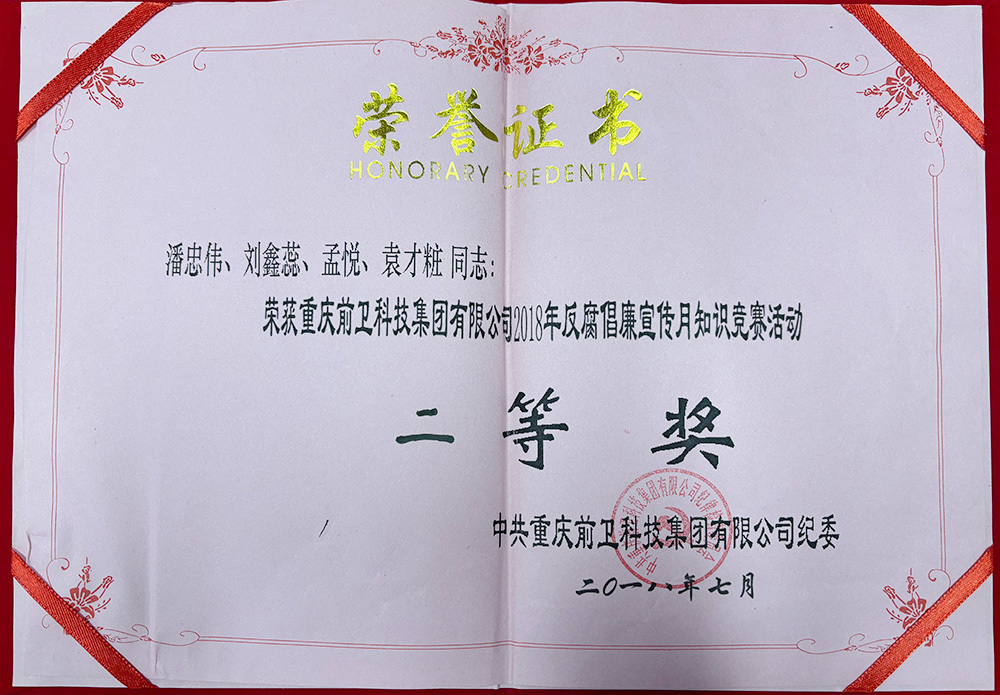 荣誉证书
HONORARY CREDENTIAL
潘忠伟、刘鑫蕊、孟悦、袁才粧 同志：
荣获重庆前卫科技集团有限公司2018年反腐倡廉宣传月知识竞赛活动
二等奖
中共重庆前卫科技集团有限公司纪委
二〇一八年七月